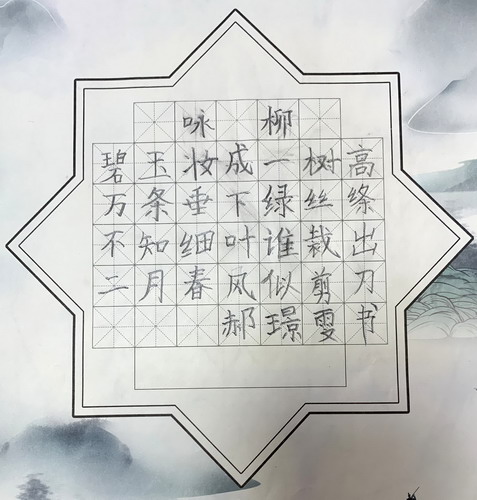 咏柳
碧玉妆成一树高
万条垂下绿丝绦
不知细叶谁裁出
二月春风似剪刀
郝璟雯书